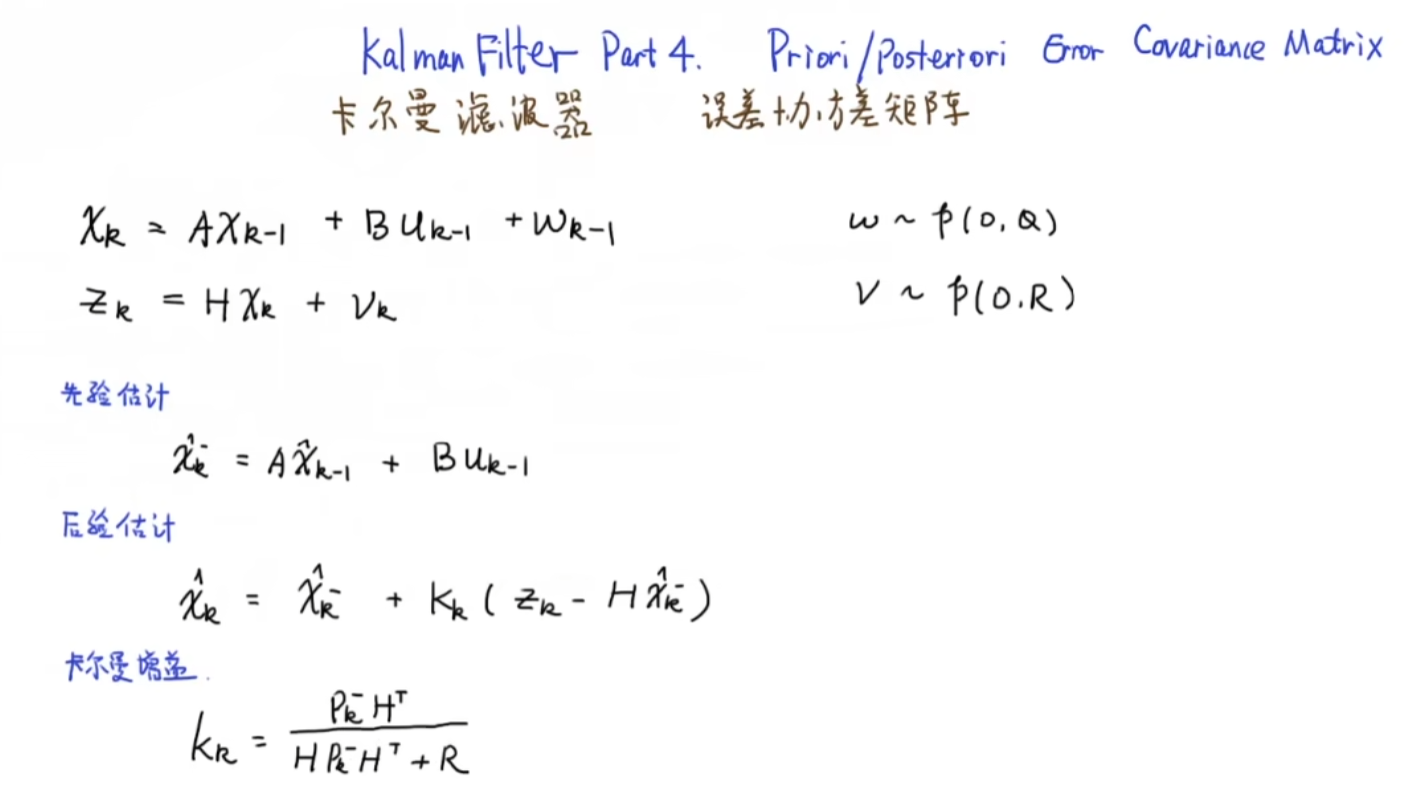 Kalman Filter Part 4. Priori/Posteriori Error Covariance Matrix
卡尔曼滤波器 误差协方差矩阵
X_k = AX_{k-1} + Bu_{k-1} + w_{k-1} w ~ p(0, Q)
z_k = HX_k + v_k v ~ p(0.R)
先验估计
x̂_k^- = Ax̂_{k-1} + Bu_{k-1}
后验估计
x̂_k = x̂_k^- + K_k ( z_k - Hx̂_k^- )
卡尔曼增益.
K_k = \frac{P_k^- H^T}{H P_k^- H^T + R}